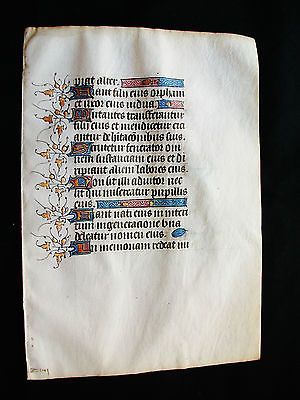 piat alter.
Fiant filii eius orphani
et uxor eius vidua.
Nutantes transferantur
filii eius et mendicent et eici
antur de habitacionibus suis.
Scrutetur fenerator om
nem substanciam eius et di
ripiant alieni labores eius.
Non sit illi adiutor nec
sit qui misereatur pupillis
eius.
Fiant nati eius in interi
tum in generacione una
deleatur nomen eius.
In memoriam redeat in